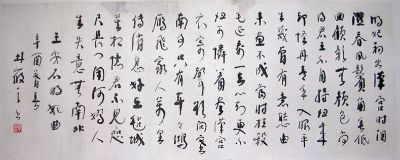 明妃初出漢宮時淚
濕春風鬢角垂低
回顧影無顏色尚
得君王不自持歸來
却怪丹青手入眼平
生未曾有意態由
來畫不成當時枉殺
毛延壽一去心知更不
歸可憐着盡漢宮
衣寄聲欲問塞
南事只有年年鴻
雁飛家人萬里
傳消息好在氈城
莫相憶君不見咫
尺長門閉阿嬌人
生失意無南北
王安石明妃曲
辛酉春
林筱之